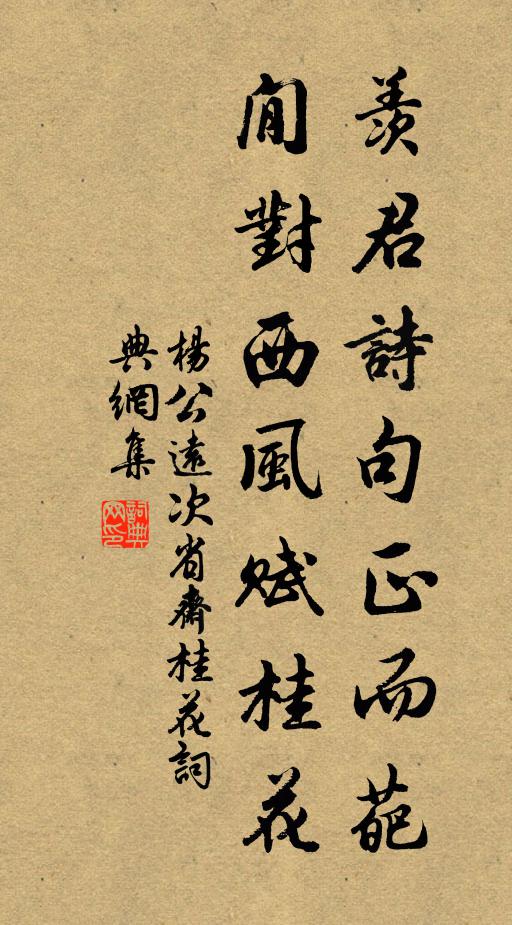 羨君詩句正而葩
閒對西風賦桂花
楊公遠次省齋桂花詞
典網集
詞典
网印